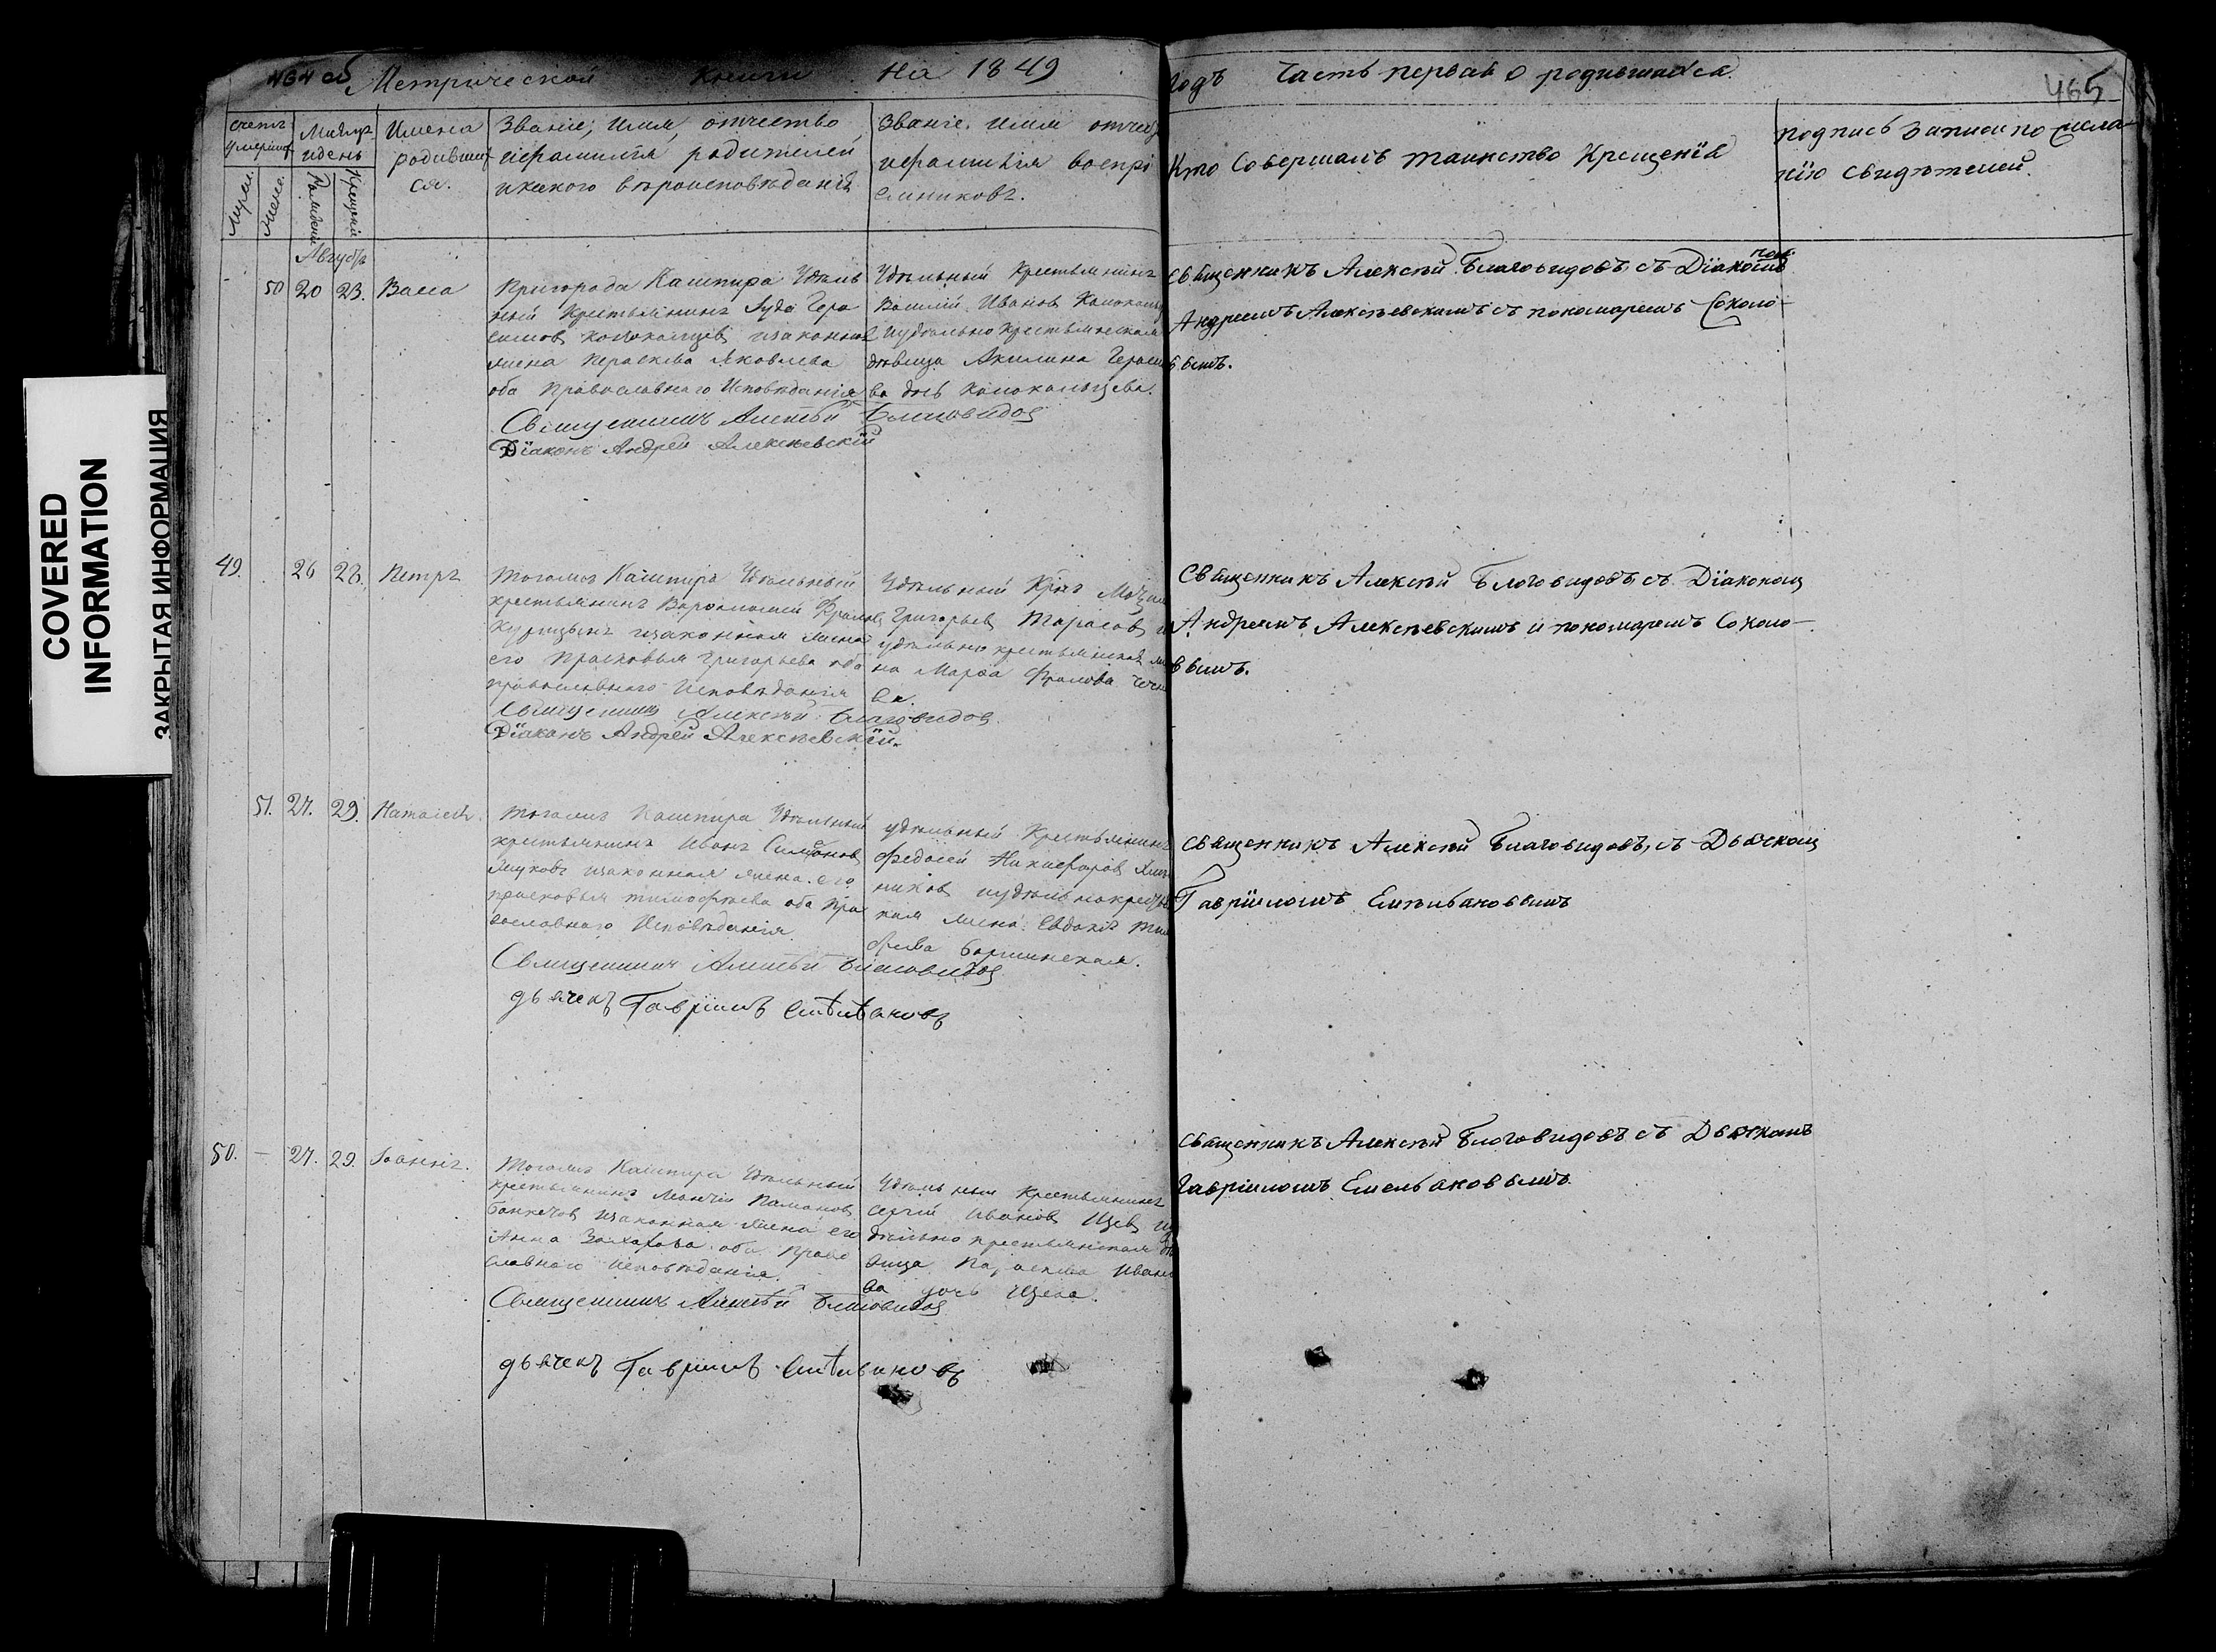 464 об Метрической книги На 1849
годъ Часть первая о родившихся.
465
Счетъ
Месяцъ
и день
Имена
родивших
ся.
Званіе, имя, отчество
и фамилія родителей
и какого вероисповѣданія
Званіе, имя отчест
и фамилія воспрі
емниковъ.
Кто Совершалъ таинство Крещенія
подпись записи по жела-
нію свидѣтелей.
Рожденія
Крещенія
Августъ
50 20 23. Васса
Пригорода Кашпира Удѣль
ный Крестьянинъ Гера
симов Колокольцев и законная
жена Параскева Яковлева
оба Православнаго Исповѣданія
Священникъ Алексѣй Благовидов
Діаконъ Андрей Алексѣевскій
Удѣльный Крестьянинъ
Василій Иванов Колокольц
и удѣльно крестьянская
дѣвица Акилина Гераси
ва дочь Колокольцева.
Священникъ Алексѣй Благовидовъ, съ Діакономъ
Андреемъ Алексѣевскимъ съ пономаремъ Соколо-
вымъ.
49. 26 28. Петръ
Тогожъ Кашпира Удѣльный
крестьянинъ Варфоломей Фролов
Курицынъ и законная жена
его Прасковья Григорьева оба
православнаго Исповѣданія
Священникъ Алексѣй Благовидов.
Діаконъ Андрей Алексѣевскій.
Удѣльный Кр
Григорьев Тарасов и
удѣльно крестьянская же
на Марфа Фролова
ва.
Священникъ Алексѣй Благовидовъ съ Діакономъ
Андреемъ Алексѣевскимъ и пономаремъ Соколо-
вымъ.
51. 27. 29. Наталія.
Тогожъ Кашпира Удѣльный
крестьянинъ Иванъ Симонов
Жуковъ и законная жена его
прасковья тимофѣева оба пра
вославнаго Исповѣданія
Священникъ Алексѣй Благовидов
дьячекъ Гавріилъ Емельановъ
удѣльный Крестьянинъ
Федосей Никифоров
ников и удѣльнокрестья
кая жена Евдокія Тим
офеева Баршинская.
Священникъ Алексѣй Благовидовъ, съ Дьячкомъ
Гавріиломъ Емельановымъ
50. – 27. 29. Іоаннъ.
Тогожъ Кашпира Удѣльный
крестьянинъ
и законная жена его
Анна Захарова оба Право
славнаго Исповѣданія.
Священникъ Алексѣй Благовидов
дьячекъ Гавріилъ Емельановъ
Удѣльный Крестьянинъ
Сергій Иванов Щев и у
дѣльно крестьянская дѣ
вица Параскева Ивано
ва дочь Щева.
Священникъ Алексѣй Благовидовъ съ Дьячкомъ
Гавріиломъ Емельановымъ.
COVERED
INFORMATION
ЗАКРЫТАЯ ИНФОРМАЦИЯ